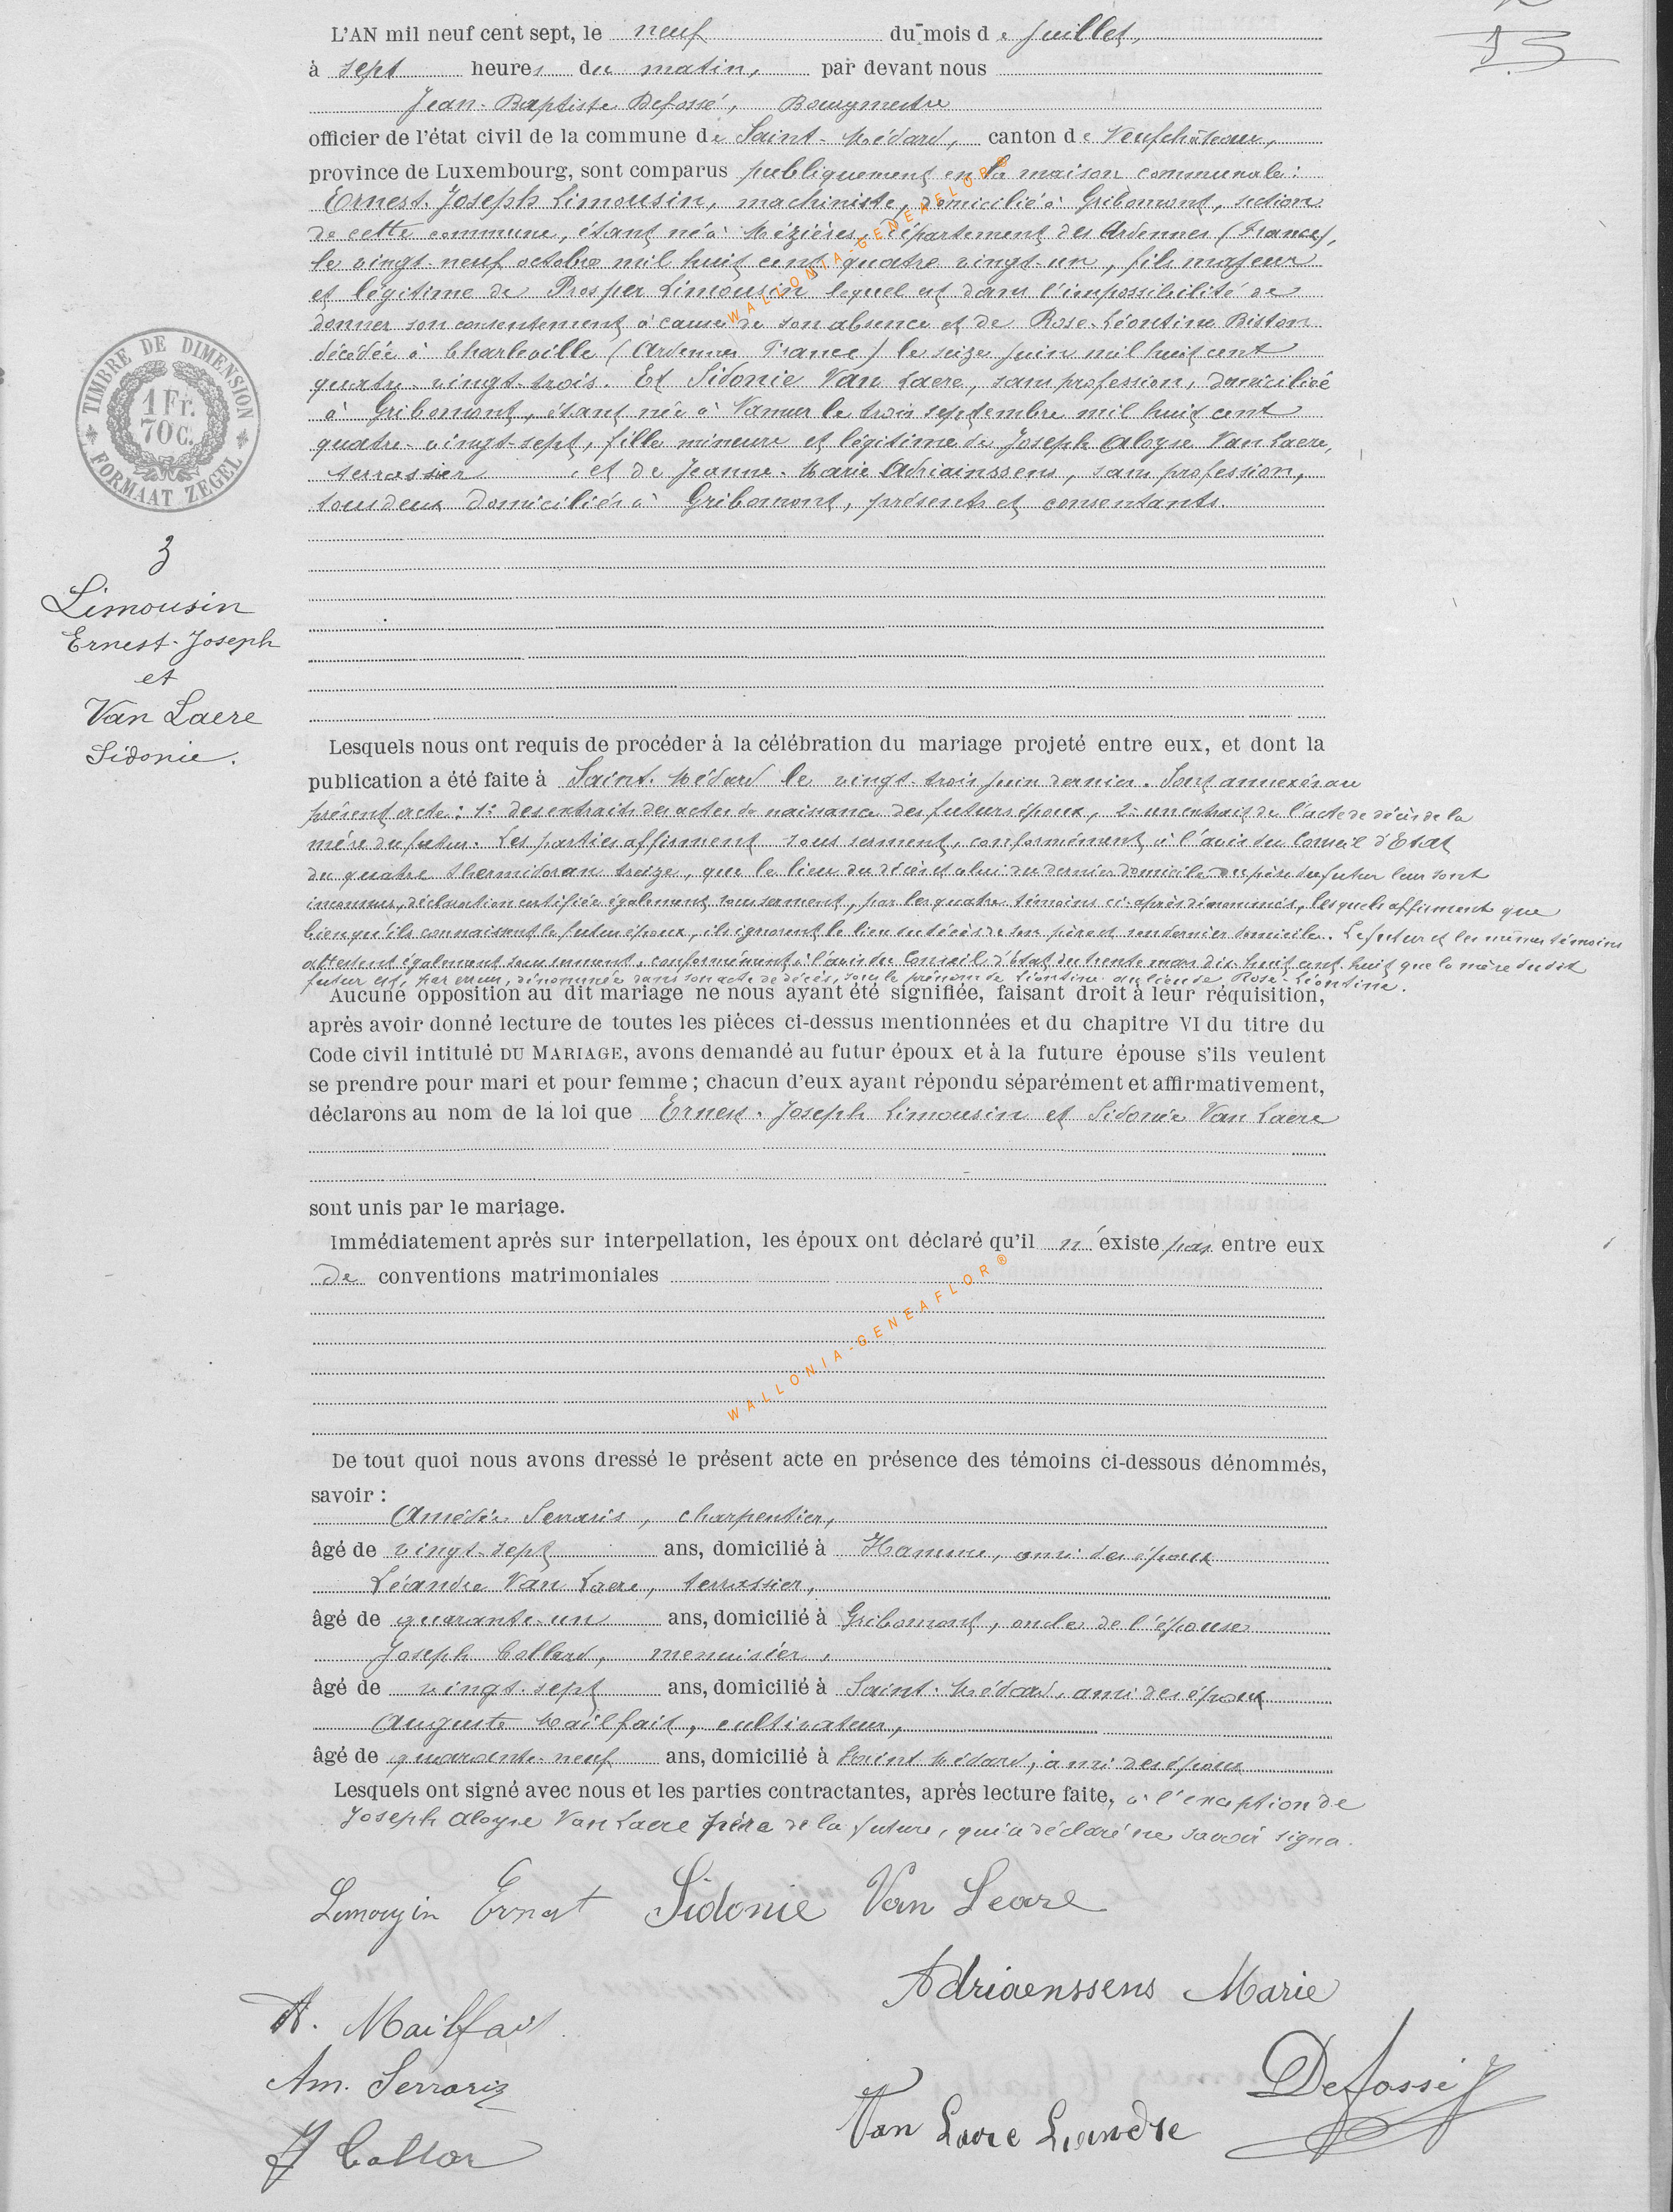 L'AN mil neuf cent sept, le neuf du mois de Juillet,
à sept heures du matin, par devant nous
Jean-Baptiste Defossé, Bourgmestre
officier de l'état civil de la commune de Saint-Médard, canton de Neufchâteau,
province de Luxembourg, sont comparus publiquement en la maison communale:
Ernest-Joseph Limousin, machiniste, domicilié à Gribomont, section
de cette commune, étant né à Mézières, département des Ardennes (France),
le vingt-neuf octobre mil huit cent quatre vingt-un, fils majeur
et légitime de Prosper Limousin lequel est dans l'impossibilité de
donner son consentement à cause de son absence et de Rose-Léontine Biston
décédée à Charleville (Ardennes France) le seize juin mil huit cent
quatre-vingt-trois. Et Sidonie Van Laere, sans profession, domiciliée
à Gribomont, étant née à Namur le trois septembre mil huit cent
quatre-vingt-sept, fille mineure et légitime de Joseph Aloyse Van Laere,
terrassier et de Jeanne-Marie Adriainssens, sans profession,
tous deux domiciliés à Gribomont, présents et consentants.
TIMBRE DE DIMENSION
1 Fr.
70 C.
FORMAAT ZEGEL
3
Limousin
Ernest-Joseph
et
Van Laere
Sidonie.
Lesquels nous ont requis de procéder à la célébration du mariage projeté entre eux, et dont la
publication a été faite à Saint-Médard le vingt-trois juin dernier. Sont annexés au
présent acte: 1° des extraits des actes de naissance des futurs époux, 2° un extrait de l'acte de décès de la
mère du futur. Les parties affirment sous serment, conformément à l'avis du Conseil d'Etat
du quatre thermidor an treize, que le lieu du décès et celui du dernier domicile du père du futur leur sont
inconnus, déclaration certifiée également sous serment, par les quatre témoins ci-après dénommés, lesquels affirment que
bien qu'ils connaissent le futur époux, ils ignorent le lieu du décès de son père et son dernier domicile. Le futur et les mêmes témoins
attestent également sous serment, conformément à l'avis du Conseil d'état du trente mars dix-huit cent huit que la mère du dit
futur est, par erreur, dénommée dans son acte de décès, sous le prénom de Léontine au lieu de Rose-Léontine.
Aucune opposition au dit mariage ne nous ayant été signifiée, faisant droit à leur réquisition,
après avoir donné lecture de toutes les pièces ci-dessus mentionnées et du chapitre VI du titre du
Code civil intitulé DU MARIAGE, avons demandé au futur époux et à la future épouse s'ils veulent
se prendre pour mari et pour femme; chacun d'eux ayant répondu séparément et affirmativement,
déclarons au nom de la loi que Ernest-Joseph Limousin et Sidonie Van Laere
sont unis par le mariage.
Immédiatement après sur interpellation, les époux ont déclaré qu'il n'existe pas entre eux
de conventions matrimoniales
WALLONIA-GENEAFLOR®
WALLONIA-GENEAFLOR®
De tout quoi nous avons dressé le présent acte en présence des témoins ci-dessous dénommés,
savoir:
Amédée Serraris, charpentier,
âgé de vingt-sept ans, domicilié à Hamme, ami des époux
Léandre Van Laere, terrassier,
âgé de quarante-un ans, domicilié à Gribomont, oncle de l'épouse
Joseph Collard, menuisier,
âgé de vingt-sept ans, domicilié à Saint-Médard, ami des époux
Auguste Mailfait, cultivateur,
âgé de quarante-neuf ans, domicilié à Saint Médard, ami des époux
Lesquels ont signé avec nous et les parties contractantes, après lecture faite, à l'exception de
Joseph Aloyse Van Laere père de la future, qui a déclaré ne savoir signer.
Limousin Ernest Sidonie Van Leare
Adriaenssens Marie
A. Mailfait
Am. Serraris
Defossé
Van Laere Léandre
J Collar